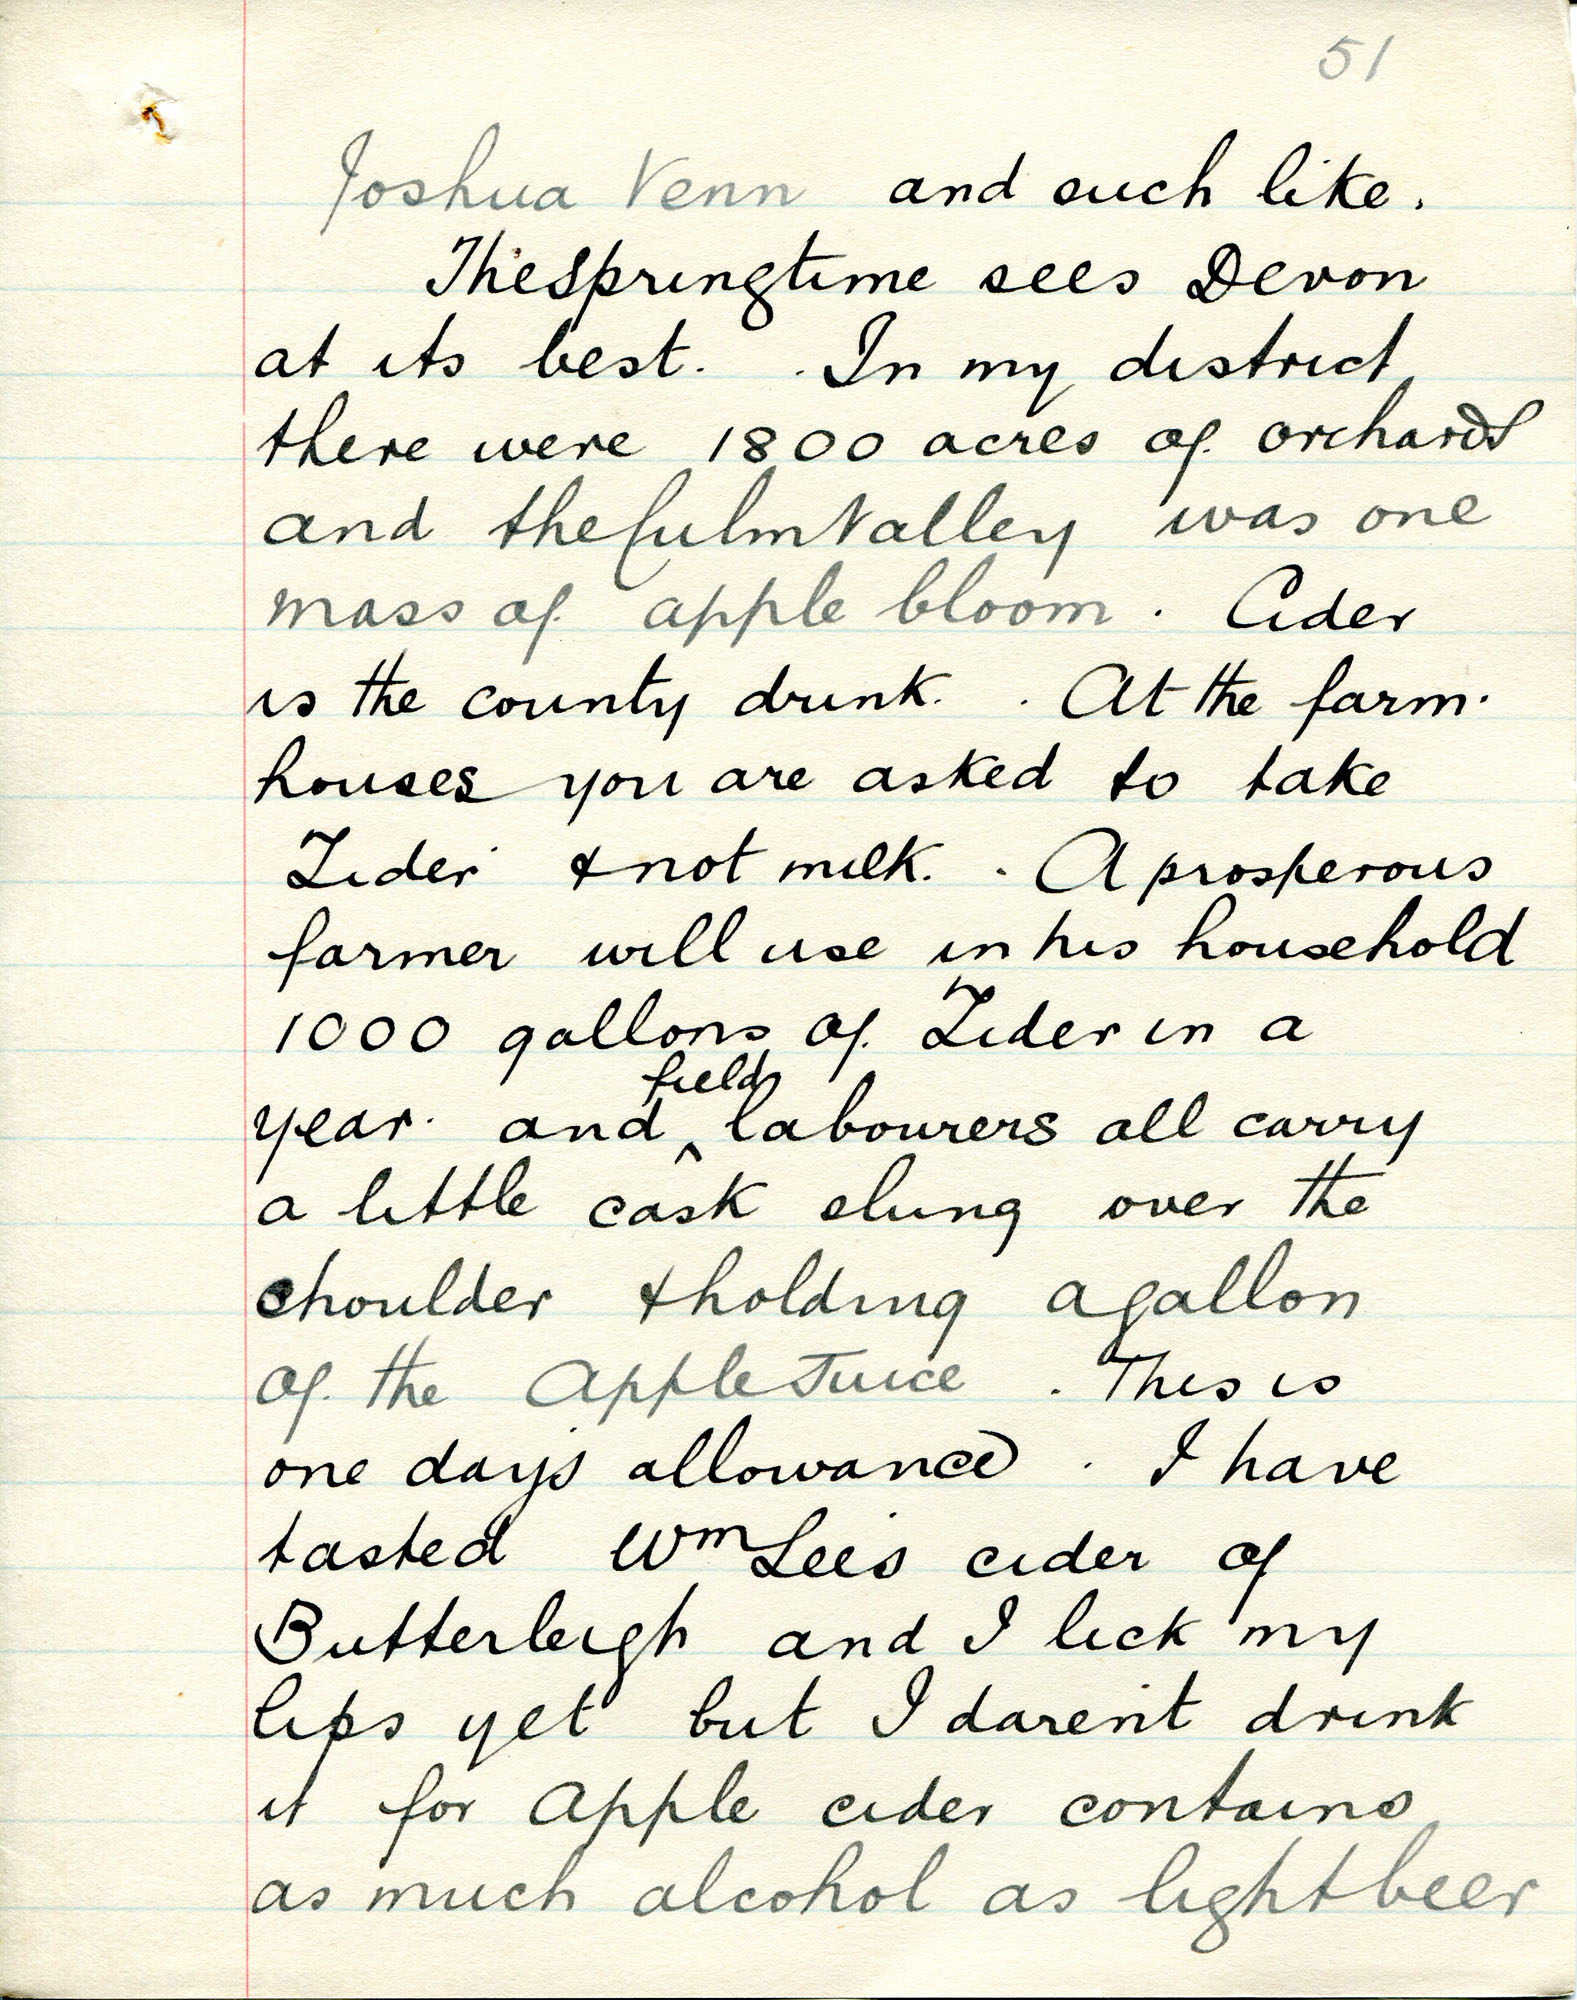 51
Joshua Venn and such like.
The Springtime sees Devon
at its best. . In my district
there were 1800 acres of orchards
and the Culm Valley was one
mass of apple bloom . Cider
is the county drink. . At the farm-
houses you are asked to take
Zider & not milk. . A prosperous
farmer will use in his household
1000 gallons of Zider in a
field
year. and ^ labourers all carry
a little cask slung over the
shoulder & holding a gallon
of the Apple Juice . This is
one day's allowance . I have
tasted Wm Lee's cider of
Butterleigh and I lick my
lips yet but I daren't drink
it for apple cider contains
as much alcohol as light beer